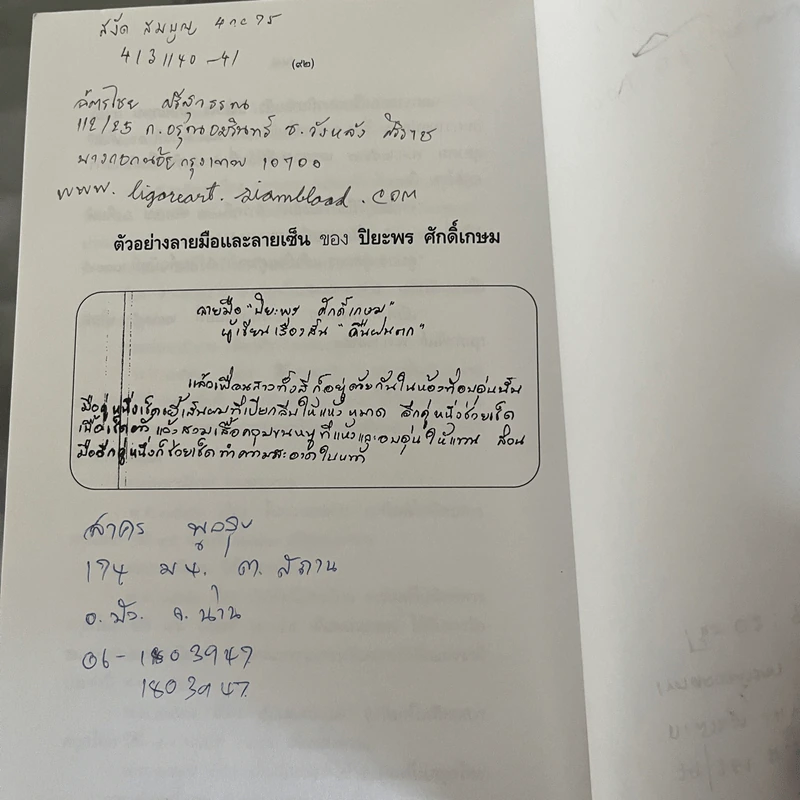 สงัด สมบูญ
413140-41
(๙๒)
ฉัตรไชย ศรีสุภรรณ
112/25 ถ.อรุณอมรินทร์ ซ.วังหลัง ศิริราช
บางกอกน้อย กรุงเทพ 10700
www.ligoreart.siamblood.com
ตัวอย่างลายมือและลายเซ็น ของ ปิยะพร ศักดิ์เกษม
ลายมือ "ปิยะพร ศักดิ์เกษม"
ผู้เขียนเรื่องสั้น "คืนฝนตก"
แล้วเพื่อนสาวทั้งสี่ก็อยู่ด้วยกันในห้องที่อบอุ่นนั้น
มือคู่หนึ่งเช็ดขยี้เส้นผมที่เปียกลีบให้แห้งหมาด อีกคู่หนึ่งช่วยเช็ด
เนื้อเช็ดตัว แล้วสวมเสื้อคลุมขนหนูที่แห้งและอบอุ่นให้แทน ส่วน
มืออีกคู่หนึ่งก็ช่วยเช็ดทำความสะอาดใบหน้า
สาคร
174 ม4. ต. สถาน
อ. ปัว. จ. น่าน
06-1803947
1803947